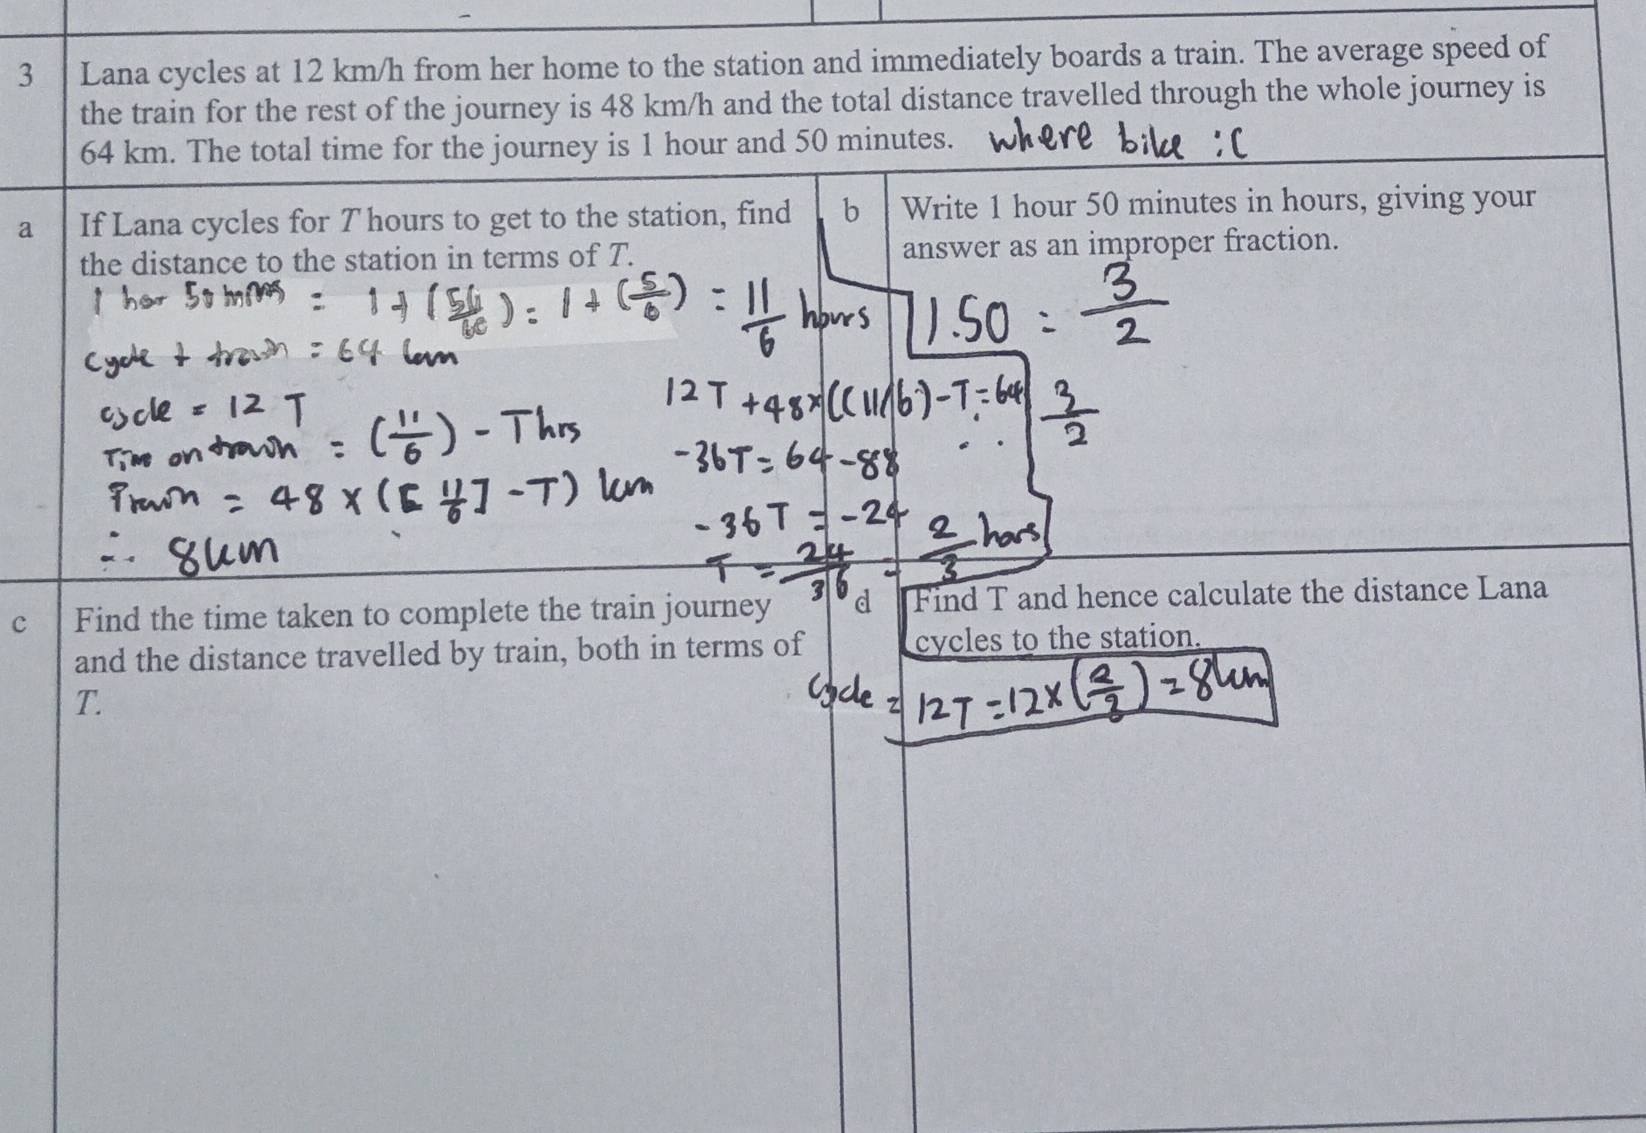 3
Lana cycles at 12 km/h from her home to the station and immediately boards a train. The average speed of
the train for the rest of the journey is 48 km/h and the total distance travelled through the whole journey is
64 km. The total time for the journey is 1 hour and 50 minutes. where bike :(
a
If Lana cycles for T hours to get to the station, find
the distance to the station in terms of T.
1 hor 50 mins = 1 + (50/60) = 1 + (5/6) = 11/6 hours
cycle + train = 64 km
cycle = 12 T
Time on train = (11/6) - T hrs
Train = 48 × ([11/6] - T) km
∴ 8km
12T + 48×((11/6)-T = 64
-36T = 64-88
-36T = -24
T = 24/36 = 2/3 hors
b
Write 1 hour 50 minutes in hours, giving your
answer as an improper fraction.
1.50 = 3/2
∴ 3/2
c
Find the time taken to complete the train journey
and the distance travelled by train, both in terms of
T.
d
Find T and hence calculate the distance Lana
cycles to the station.
Cycle = 12T = 12×(2/3) = 8km